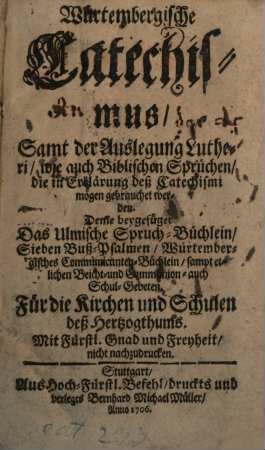 Würtembergische
Catechis-
mus/
Samt der Außlegung Luthe-
ri/ wie auch Biblischen Sprüchen/
die in Erklärung deß Catechismi
mögen gebrauchet wer-
den.
Deme beygefüget
Das Ulmische Spruch-Büchlein/
Sieben Buß-Psalmen/ Würtember-
gisches Communicanten-Büchlein/ sampt et-
lichen Beicht-und Communion-auch
Schul-Gebeten.
Für die Kirchen und Schulen
deß Hertzogthums.
Mit Fürstl. Gnad und Freyheit/
nicht nachzudrucken.
Stuttgart/
Aus Hoch-Fürstl. Befehl/ druckts und
verlegts Bernhard Michael Müller/
Anno 1706.